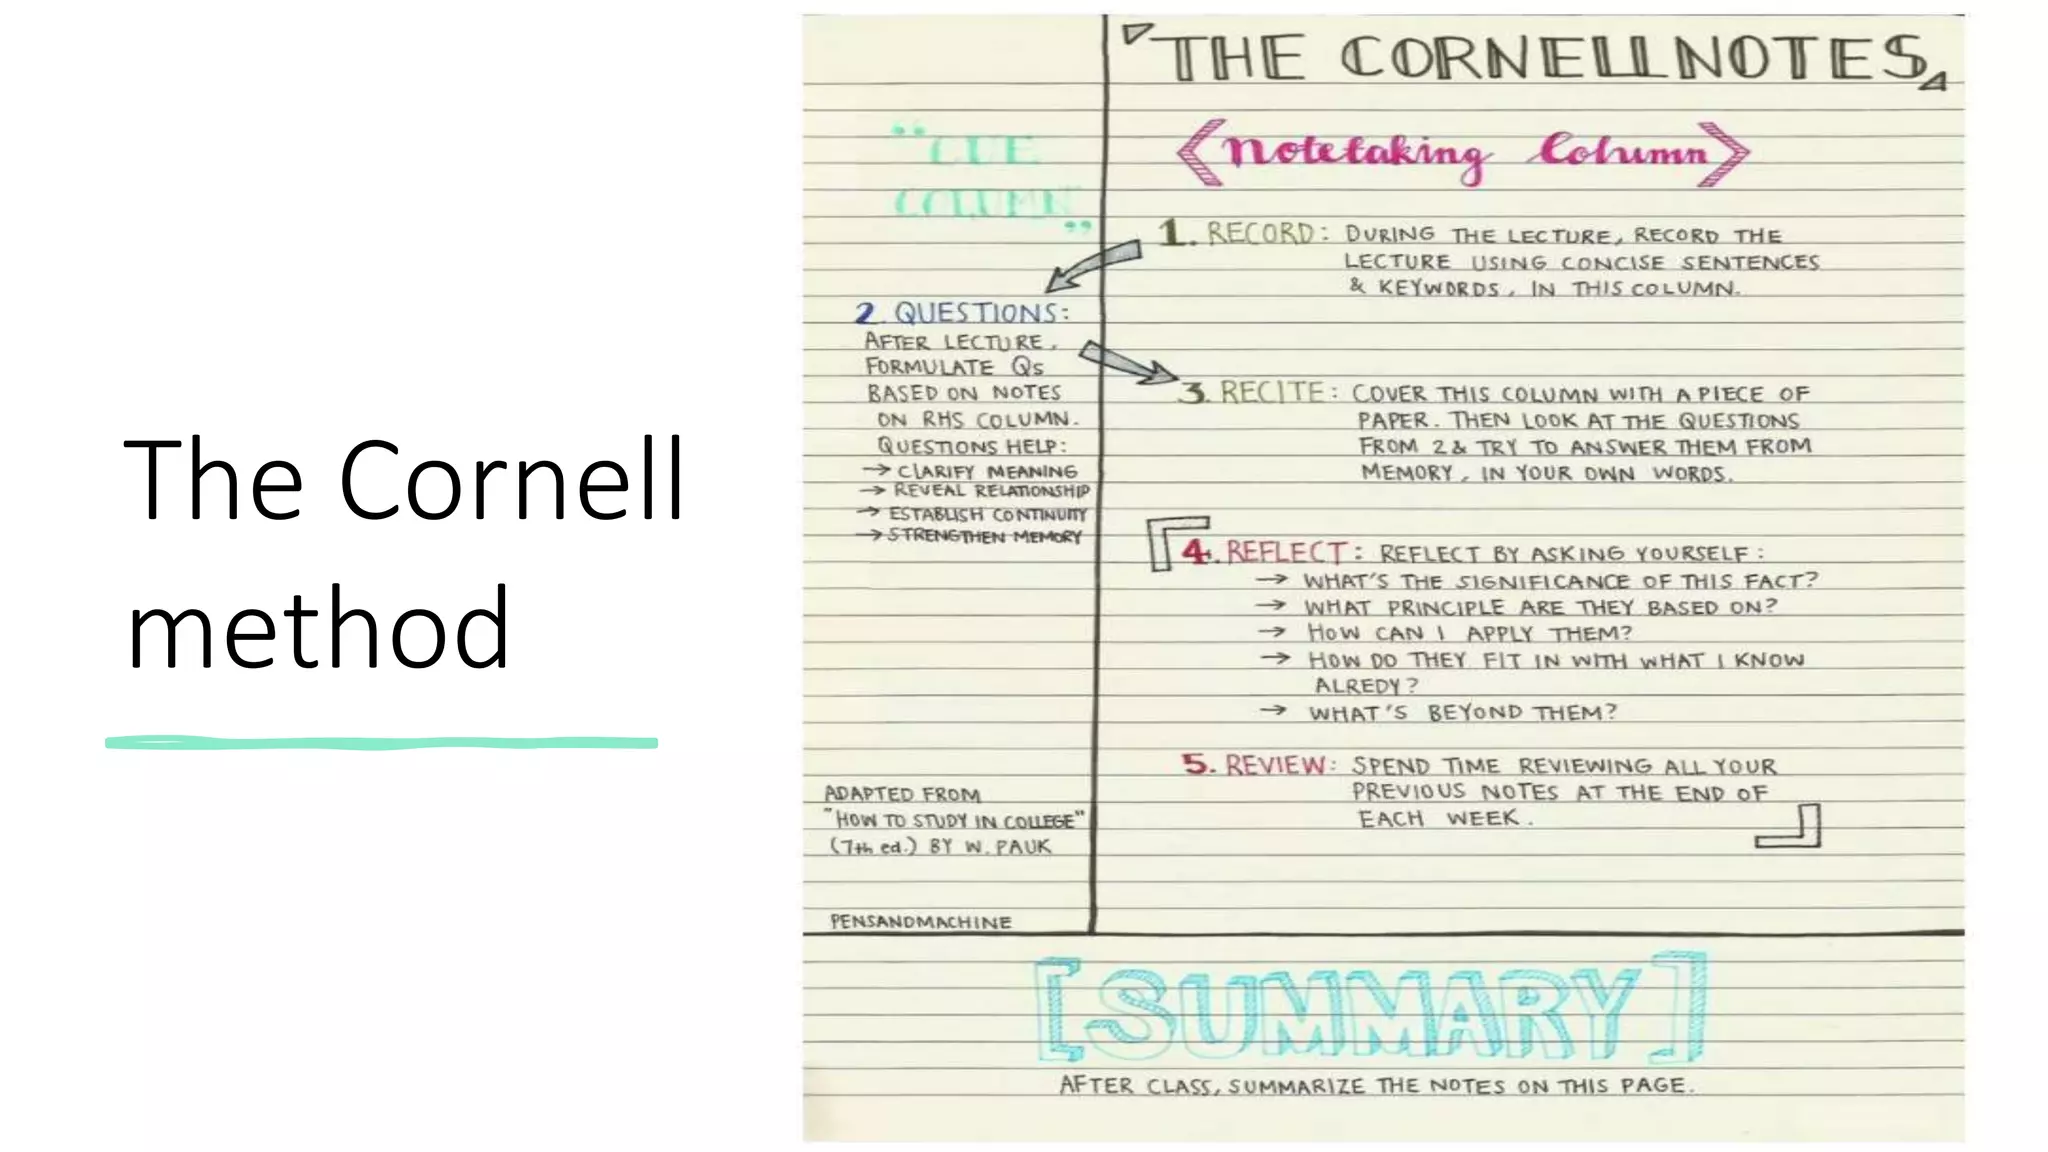 The Cornell
method
THE CORNELL NOTES
"CUE
COLUMN"
Notetaking Column
1. RECORD: DURING THE LECTURE, RECORD THE
LECTURE USING CONCISE SENTENCES
& KEYWORDS, IN THIS COLUMN.
2. QUESTIONS:
AFTER LECTURE,
FORMULATE Qs
BASED ON NOTES
ON RHS COLUMN.
QUESTIONS HELP:
→ CLARIFY MEANING
→ REVEAL RELATIONSHIP
→ ESTABLISH CONTINUITY
→ STRENGTHEN MEMORY
3. RECITE: COVER THIS COLUMN WITH A PIECE OF
PAPER. THEN LOOK AT THE QUESTIONS
FROM 2 & TRY TO ANSWER THEM FROM
MEMORY, IN YOUR OWN WORDS.
4. REFLECT: REFLECT BY ASKING YOURSELF:
→ WHAT'S THE SIGNIFICANCE OF THIS FACT?
→ WHAT PRINCIPLE ARE THEY BASED ON?
→ HOW CAN I APPLY THEM?
→ HOW DO THEY FIT IN WITH WHAT I KNOW
ALREDY?
→ WHAT'S BEYOND THEM?
5. REVIEW: SPEND TIME REVIEWING ALL YOUR
PREVIOUS NOTES AT THE END OF
EACH WEEK.
ADAPTED FROM
"HOW TO STUDY IN COLLEGE"
(7th ed.) BY W. PAUK
PENSANDMACHINE
[SUMMARY]
AFTER CLASS, SUMMARIZE THE NOTES ON THIS PAGE.